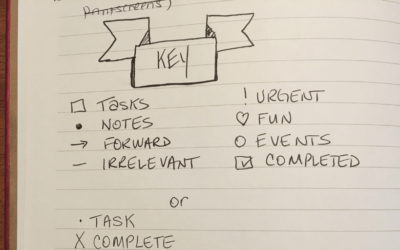 printscreens)
KEY
□ TASKS
● NOTES
→ FORWARD
— IRRELEVANT
! URGENT
♡ FUN
○ EVENTS
☑ COMPLETED
or
· TASK
X COMPLETE